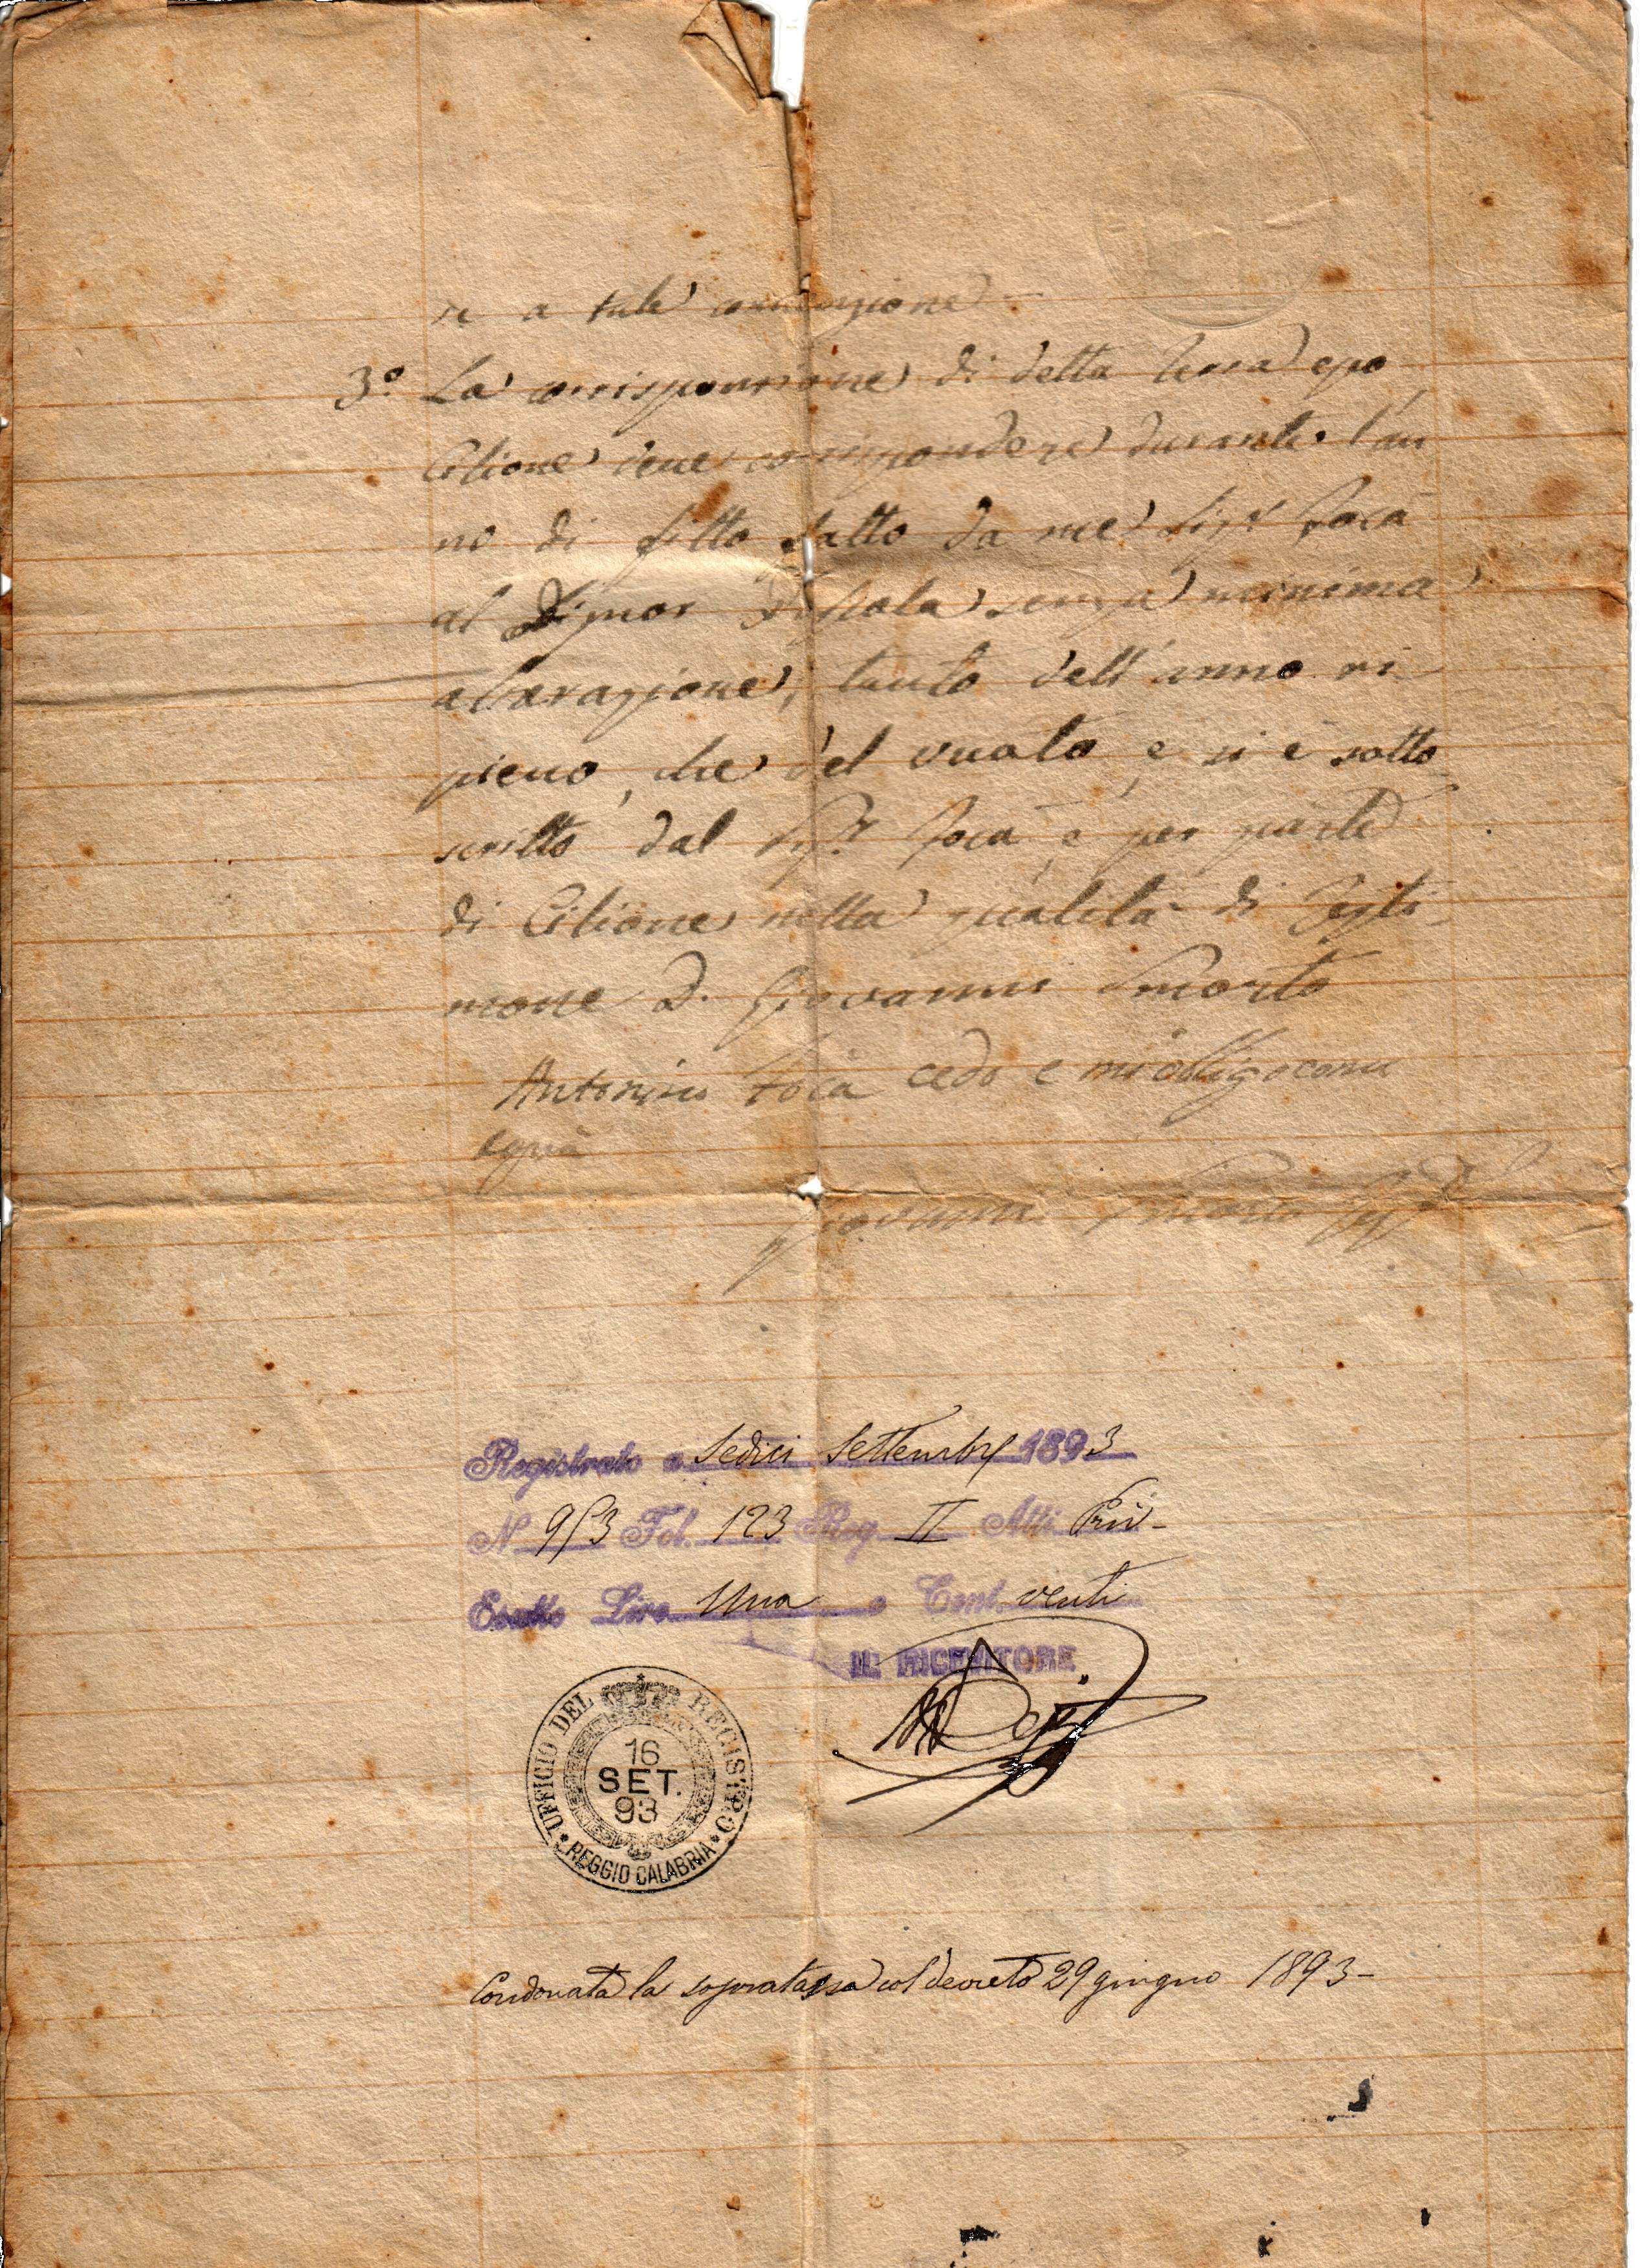 re a tale convenzione
3º La corrisponsione di detta terra esso
Cilione deve corrispondere durante l'an
no di fitto fatto da me Sigr Focà
al Signor senza minima
alterazione, tanto dell'anno ri
pieno, che del vuoto, e si è sotto
scritto dal Sigr Focà e per parte
di Cilione nella qualità di
D. Giovanni Smorto
Antonino Focà cedo e mi obbligo come
Giovanni Smorto
Registrato a Sedici Settembre 1893
N 953 Fol. 123 Reg II Atti Priv-
Esatto Lire Una e Cent. venti
IL RICEVITORE
UFFICIO DEL REGISTRO
16
SET.
93
REGGIO CALABRIA
Condonata la sopratassa col decreto 29 giugno 1893-